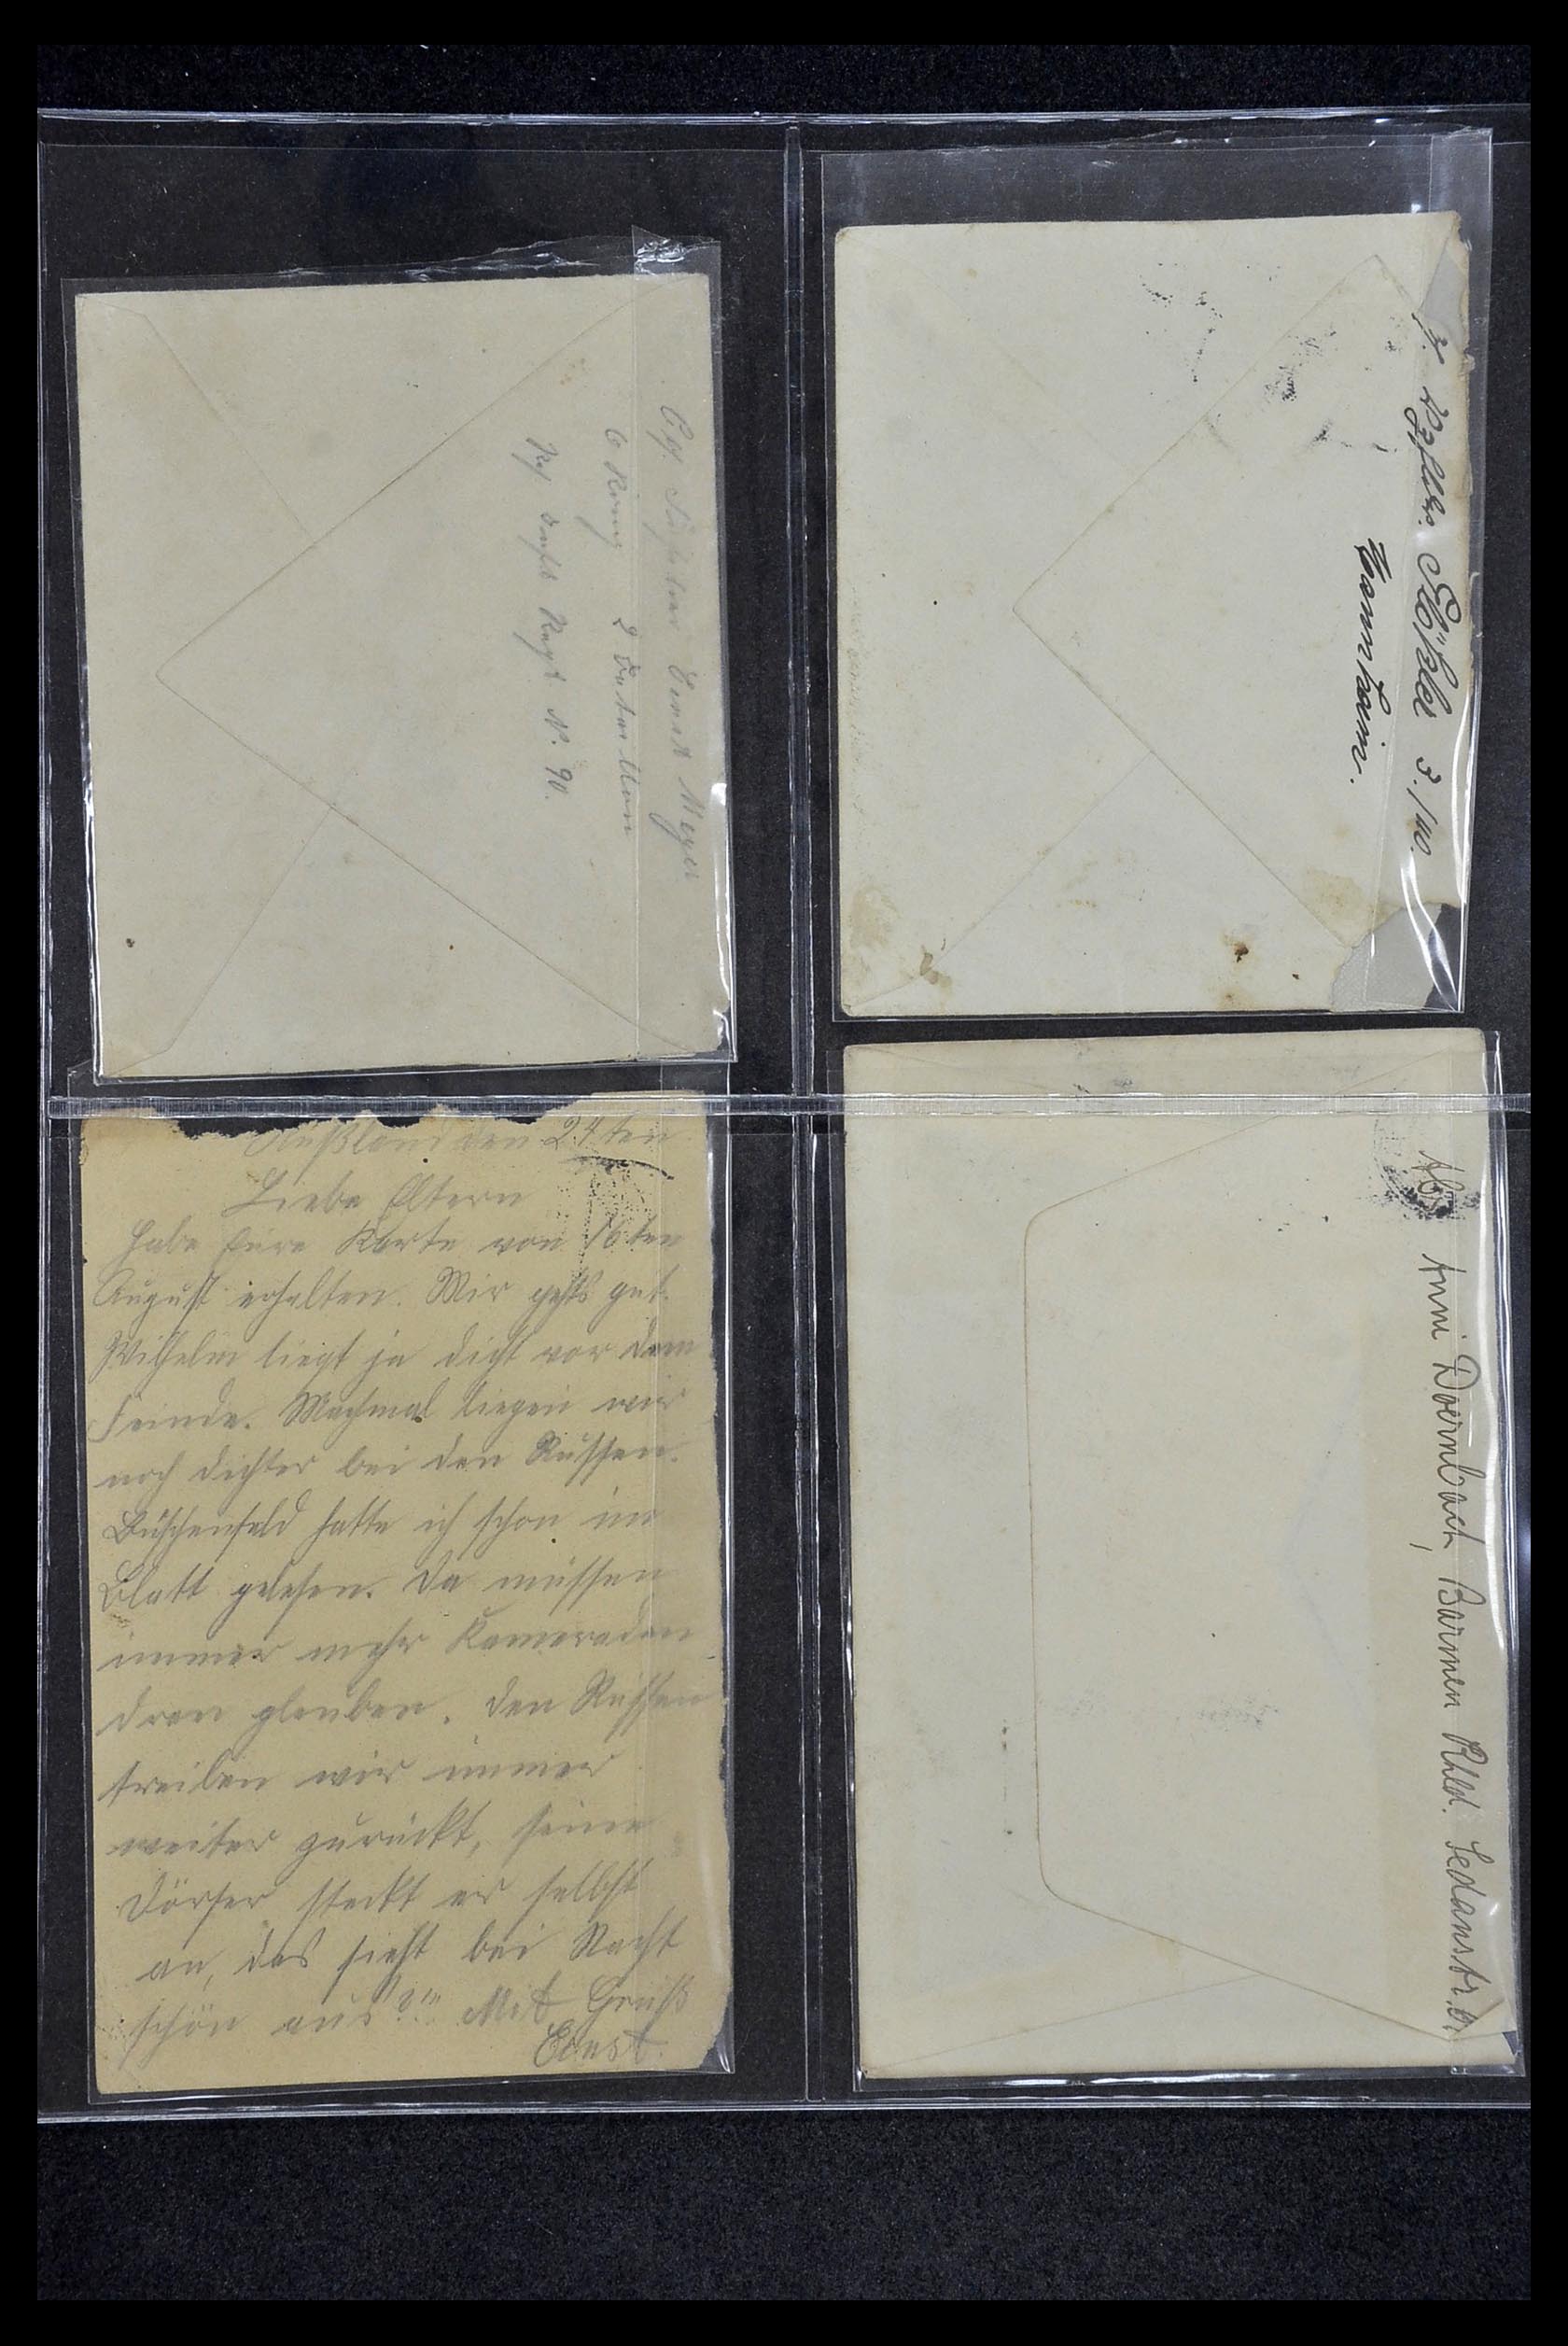 Ernst Meyer
2 Batallon
Regt. N. 90.
3./110.
Mannheim.
Rußland den 24ten
Liebe Eltern
Habe Eure Karte von 16ten
August erhalten. Mir gehts gut.
Wilhelm liegt ja dicht vor dem
Feinde. Machmal liegen wir
noch dichter bei den Russen.
Büschenfeld hatte ich schon im
Blatt gelesen. Da müssen
immer mehr Kameraden
dran glauben. Den Russen
treiben wir immer
weiter zurückt, seine
Dörfer steckt er selbst
an, das sieht bei Nacht
schön aus!!! Mit Gruß
Ernst.
Abs. Anni Doernbach, Barmen Rhld. Sedanstr.